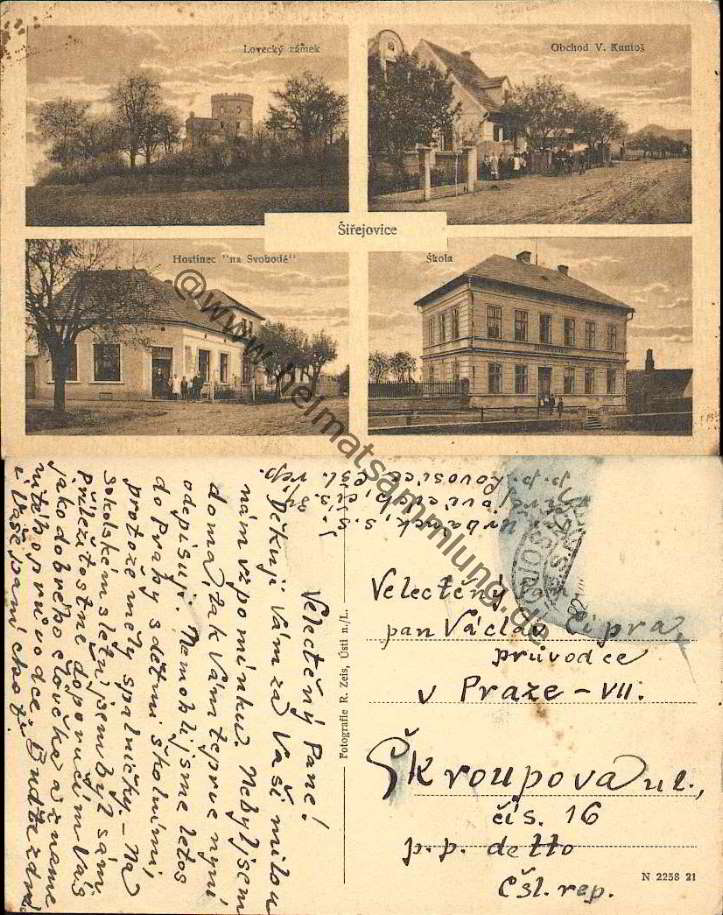 Lovecký zámek
Obchod V. Kuntoš
Šiřejovice
Hostinec "na Svobodě"
Škola
@www.heimatsammlung.de
p. p. Lovosice čsl. rep.
čís. 31,
Velectěný Pane!
Děkuji Vám za Vaši milou
nám vzpomínku. Nebyl jsem
doma, tak Vám teprve nyní
odepisuji. Nemohli jsme letos
do Prahy s dětmi školními,
protože měly spalničky. – Na
Sokolském sletu jsem byl sám.
Příležitostně doporučím Vás
jako dobrého člověka a známe-
nitého průvodce. Buďte zdráv
i Vaše paní choť.
Fotografie R. Zeis, Ústí n./L.
Velectěný
pan Václav Cipra,
průvodce
v Praze – VII.
Škroupova ul.,
čís. 16
p. p. detto
Čsl. rep.
N 2258 21